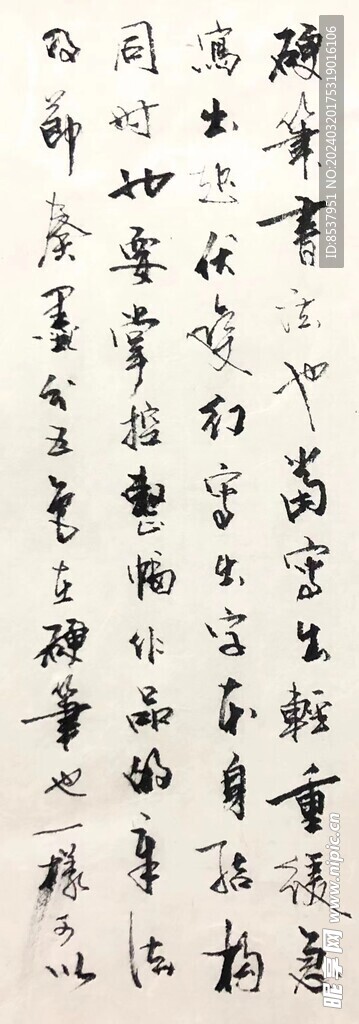 硬筆書法也當寫出輕重緩急
寫出起伏變幻寫出字本身結構
同時也要掌控整幅作品的章法
及節奏墨分五色在硬筆也一樣可以
ID:8537951 NO:20240320175319016106
昵享网 www.nipic.cn
www.nipic.com.cn